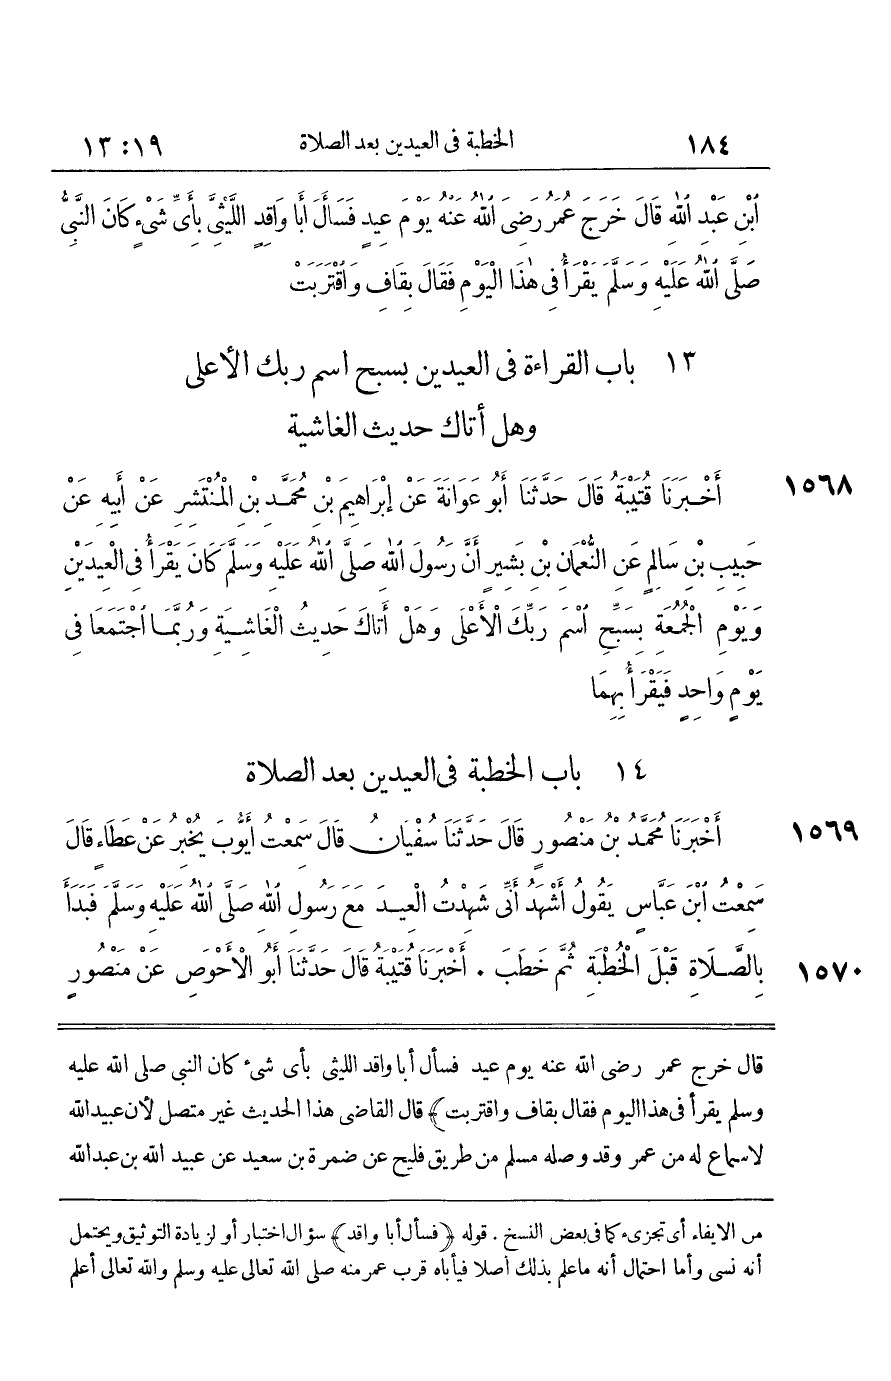 ١٨٤ الخطبة فى العيدين بعد الصلاة ١٩ : ١٣
ٱبْنِ عَبْدِ ٱللهِ قَالَ خَرَجَ عُمَرُ رَضِىَ ٱللهُ عَنْهُ يَوْمَ عِيدٍ فَسَأَلَ أَبَا وَاقِدٍ اللَّيْثِىَّ بِأَىِّ شَىْءٍ كَانَ النَّبِىُّ
صَلَّى ٱللهُ عَلَيْهِ وَسَلَّمَ يَقْرَأُ فِى هٰذَا الْيَوْمِ فَقَالَ بِقَافْ وَاقْتَرَبَتْ
١٣ باب القراءة فى العيدين بسبح اسم ربك الأعلى
وهل أتاك حديث الغاشية
١٥٦٨ أَخْبَرَنَا قُتَيْبَةُ قَالَ حَدَّثَنَا أَبُو عَوَانَةَ عَنْ إِبْرَاهِيمَ بْنِ مُحَمَّدِ بْنِ الْمُنْتَشِرِ عَنْ أَبِيهِ عَنْ
حَبِيبِ بْنِ سَالِمٍ عَنِ النُّعْمَانِ بْنِ بَشِيرٍ أَنَّ رَسُولَ ٱللهِ صَلَّى ٱللهُ عَلَيْهِ وَسَلَّمَ كَانَ يَقْرَأُ فِى الْعِيدَيْنِ
وَيَوْمِ الْجُمُعَةِ بِسَبِّحِ ٱسْمَ رَبِّكَ الْأَعْلَى وَهَلْ أَتَاكَ حَدِيثُ الْغَاشِيَةِ وَرُبَّمَا ٱجْتَمَعَا فِى
يَوْمٍ وَاحِدٍ فَيَقْرَأُ بِهِمَا
١٤ باب الخطبة فى العيدين بعد الصلاة
١٥٦٩ أَخْبَرَنَا مُحَمَّدُ بْنُ مَنْصُورٍ قَالَ حَدَّثَنَا سُفْيَانُ قَالَ سَمِعْتُ أَيُّوبَ يُخْبِرُ عَنْ عَطَاءٍ قَالَ
سَمِعْتُ ٱبْنَ عَبَّاسٍ يَقُولُ أَشْهَدُ أَنِّى شَهِدْتُ الْعِيدَ مَعَ رَسُولِ ٱللهِ صَلَّى ٱللهُ عَلَيْهِ وَسَلَّمَ فَبَدَأَ
١٥٧٠ بِالصَّلَاةِ قَبْلَ الْخُطْبَةِ ثُمَّ خَطَبَ . أَخْبَرَنَا قُتَيْبَةُ قَالَ حَدَّثَنَا أَبُو الْأَحْوَصِ عَنْ مَنْصُورٍ
قال خرج عمر رضى الله عنه يوم عيد فسأل أبا واقد الليثى بأى شىء كان النبى صلى الله عليه
وسلم يقرأ فى هذا اليوم فقال بقاف واقتربت﴾ قال القاضى هذا الحديث غير متصل لأن عبيد الله
لاسماع له من عمر وقد وصله مسلم من طريق فليح عن ضمرة بن سعيد عن عبيد الله بن عبدالله
من الايفاء أى تجزىء كما فى بعض النسخ . قوله ﴿فسأل أبا واقد﴾ سؤال اختبار أو لزيادة التوثيق ويحتمل
أنه نسى وأما احتمال أنه ماعلم بذلك أصلا فيأباه قرب عمر منه صلى الله تعالى عليه وسلم والله تعالى أعلم